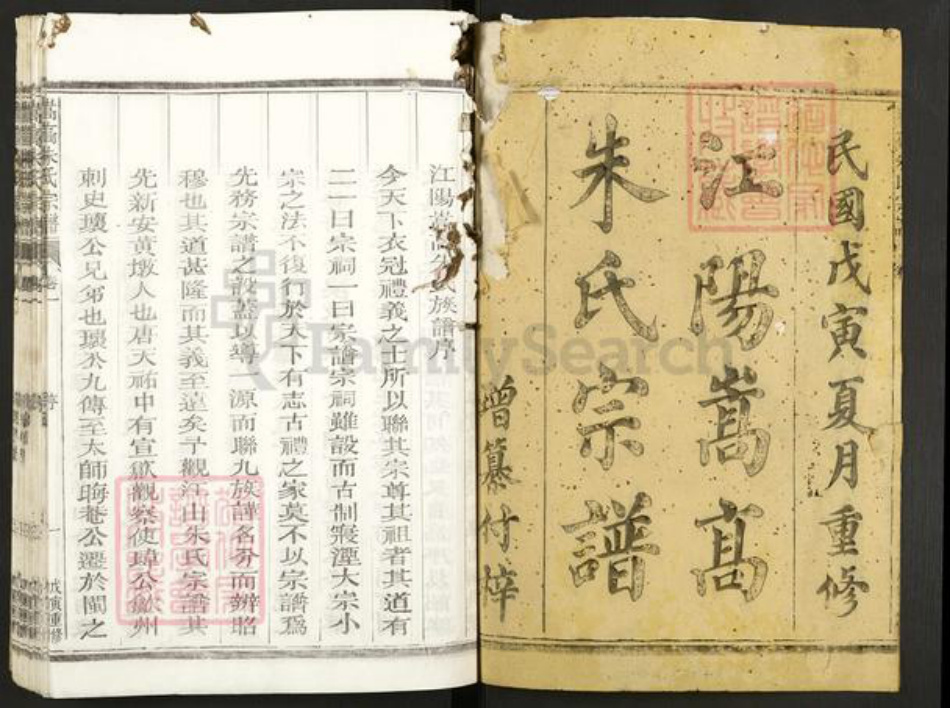 民國戊寅夏月重修
江陽嵩高
朱氏宗譜
增纂付梓
江陽嵩高朱氏族譜序
今天下衣冠禮義之士所以聯其宗尊其祖者其道有
二一曰宗祠一曰家譜宗祠雖設而古制寖湮大宗小
宗之法不復行於天下有志古禮之家莫不以宗譜爲
先務宗譜之設蓋以導一源而聯九族譁名分而辨昭
穆也其道甚隆而其義至遠矣予觀江山朱氏宗譜其
先新安黃墩人也唐天祐中有宣歙觀察使瑋公歙州
刺史瓌公兄弟也瓌公九傳至太師晦菴公遷於閩之
嵩高朱氏宗譜
卷一
序
一
戊寅重修
FamilySearch